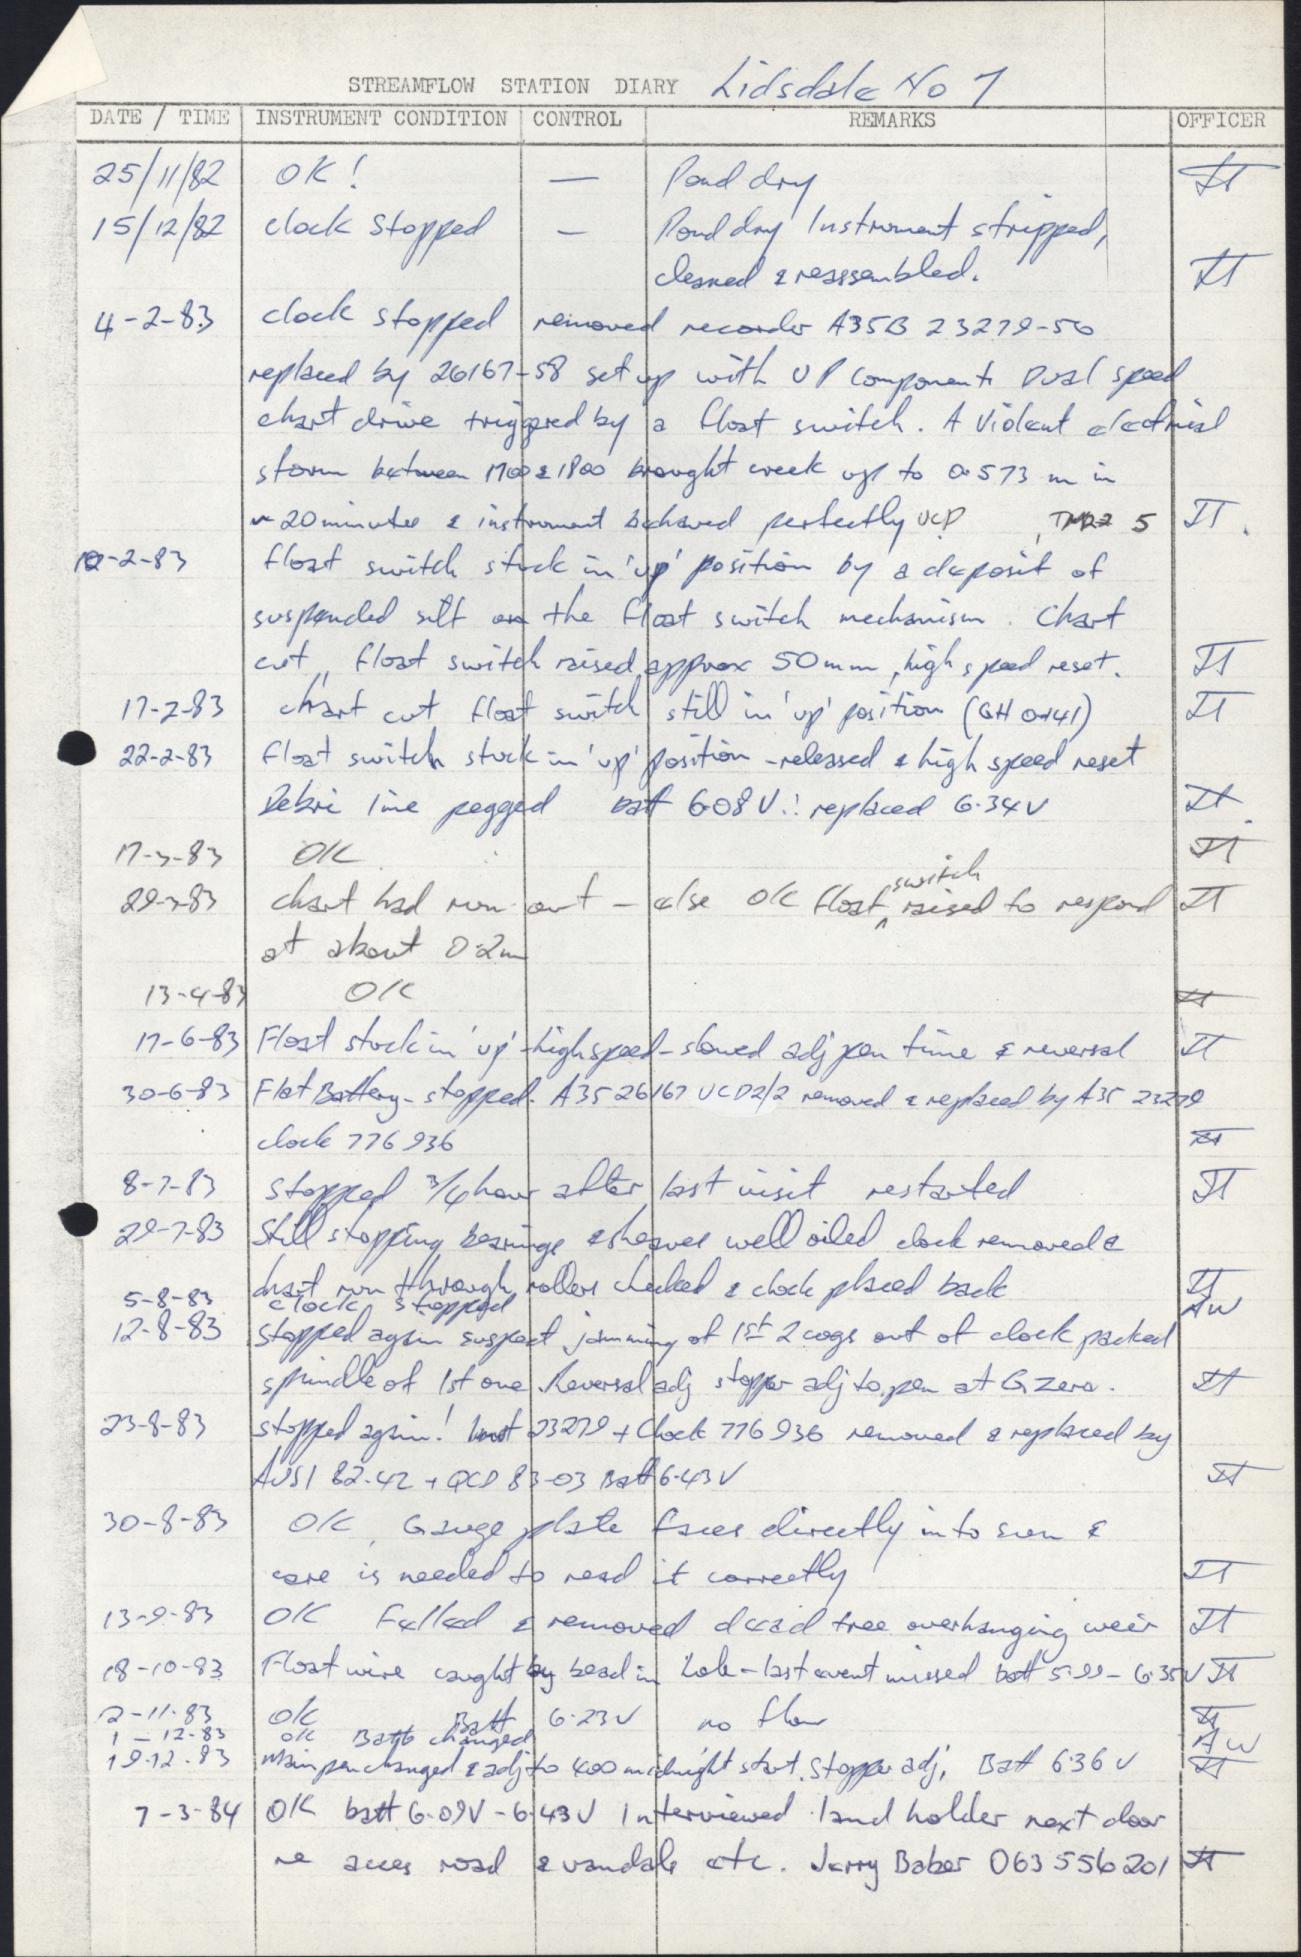 STREAMFLOW STATION DIARY Lidsdale No 7
DATE / TIME INSTRUMENT CONDITION CONTROL REMARKS OFFICER
25/11/82 OK! — Pond dry JT
15/12/82 clock Stopped — Pond dry Instrument stripped,
cleaned & reasssembled. JT
4-2-83 clock stopped removed recorder A35B 23279-50
replaced by 26167-58 set up with UP components Dual speed
chart drive triggered by a float switch. A Violent electrical
storm between 1700 & 1800 brought creek up to 0.573 m in
~20 minutes & instrument behaved perfectly UCD 5 JT.
10-2-83 float switch stuck in 'up' position by a deposit of
suspended silt on the float switch mechanism. Chart
cut, float switch raised approx 50mm, high speed reset. JT
17-2-83 chart cut float switch still in 'up' position (GH 0.141) JT
22-2-83 float switch stuck in 'up' position - released & high speed reset
Debri line pegged batt 6.08V ∴ replaced 6.34V JT.
17-3-83 OK JT
29-3-83 chart had run out - else OK float switch raised to respond JT
at about 0.2m
13-4-83 OK JT
17-6-83 Float stuck in 'up' - high speed - slowed adj pen time & reversal JT
30-6-83 Flat Battery - stopped. A35 26167 UCD2/2 removed & replaced by A35 23279
clock 776936 JT
8-7-83 Stopped 3/4 hour after last visit restarted JT
29-7-83 Still stopping bearings & sheaves well oiled clock removed &
chart run through rollers checked & clock placed back JT
5-8-83 clock stopped AW
12-8-83 stopped again suspect jamming of 1st 2 cogs out of clock packed
spindle of 1st one. Reversal adj stopper adj to pen at G zero. JT
23-8-83 stopped again! Inst 23279 + Clock 776936 removed & replaced by
AUS1 82-42 + QCD 83-03 Batt 6.43V JT
30-8-83 OK, Gauge plate faces directly into sun &
care is needed to read it correctly JT
13-9-83 OK Felled & removed dead tree overhanging weir JT
18-10-83 Float wire caught by bead in hole - last event missed batt 5.99 - 6.35V JT
2-11-83 OK Batt 6.23V no flow JT
1-12-83 OK Batt changed AW
19-12-83 Main pen changed & adj to 400 midnight start. Stopper adj, Batt 6.36V JT
7-3-84 OK batt 6.09V - 6.43V Interviewed land holder next door
re acces road & vandals etc. Jerry Baber 063 556201 JT